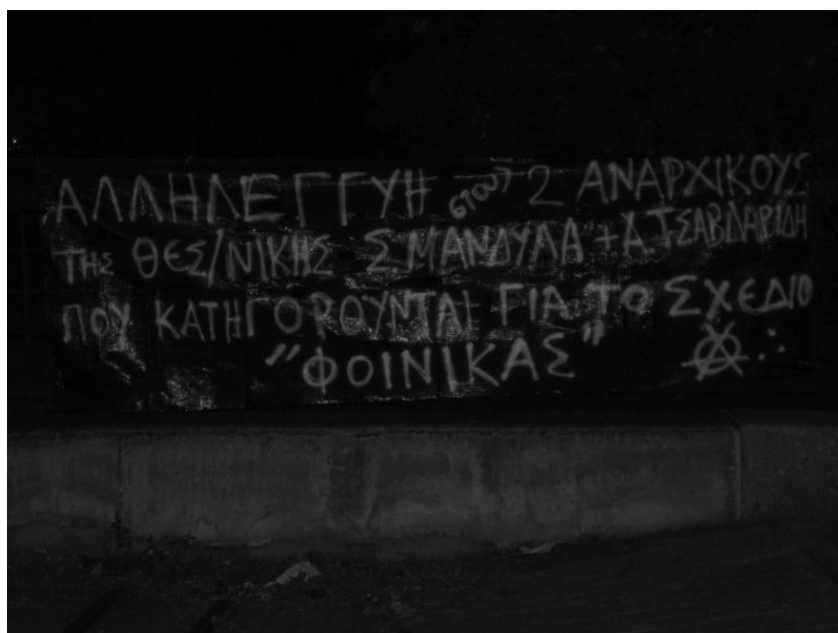 ΑΛΛΗΛΕΓΓΥΗ στους 2 ΑΝΑΡΧΙΚΟΥΣ
ΤΗΣ ΘΕΣ/ΝΙΚΗΣ Σ ΜΑΝΔΥΛΑ + Α ΤΣΑΒΔΑΡΙΔΗ
ΠΟΥ ΚΑΤΗΓΟΡΟΥΝΤΑΙ ΓΙΑ ΤΟ ΣΧΕΔΙΟ
"ΦΟΙΝΙΚΑΣ"